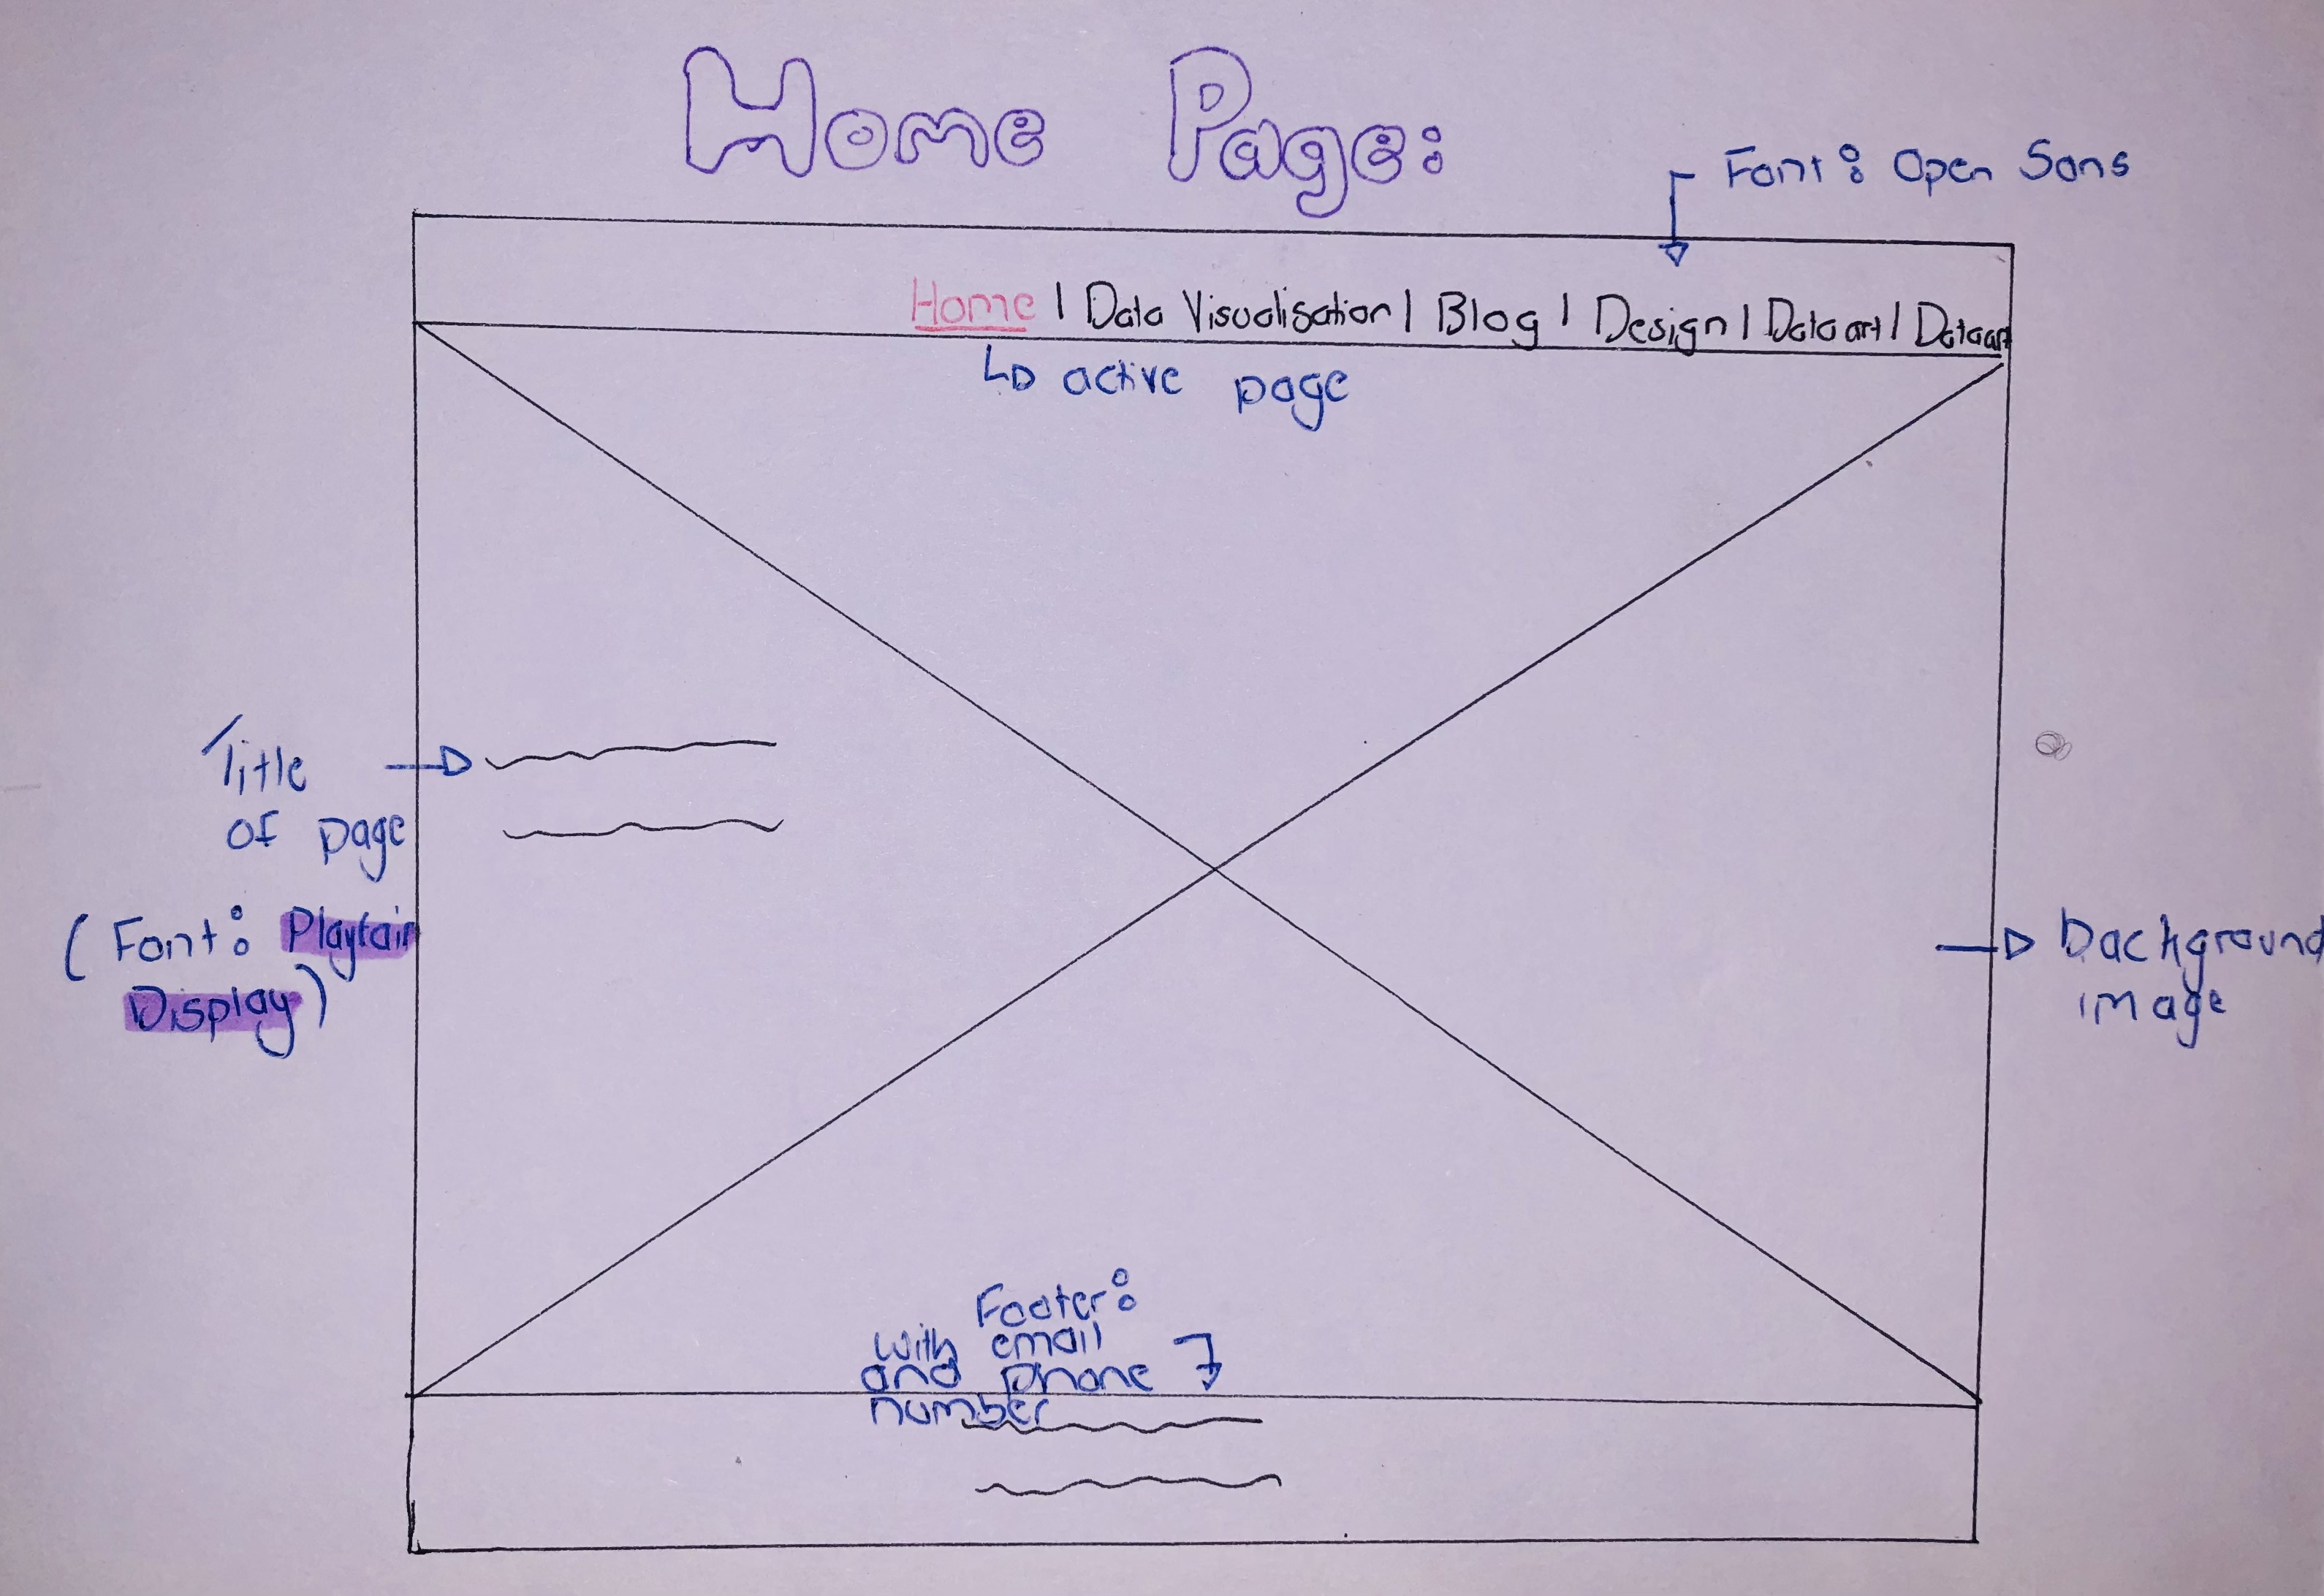 Home Page:
Font: Open Sans
Home | Data Visualisation | Blog | Design | Data art | Dataart
active page
Title
of page
(Font: Playfair
Display)
background
image
Footer:
with email
and phone
number